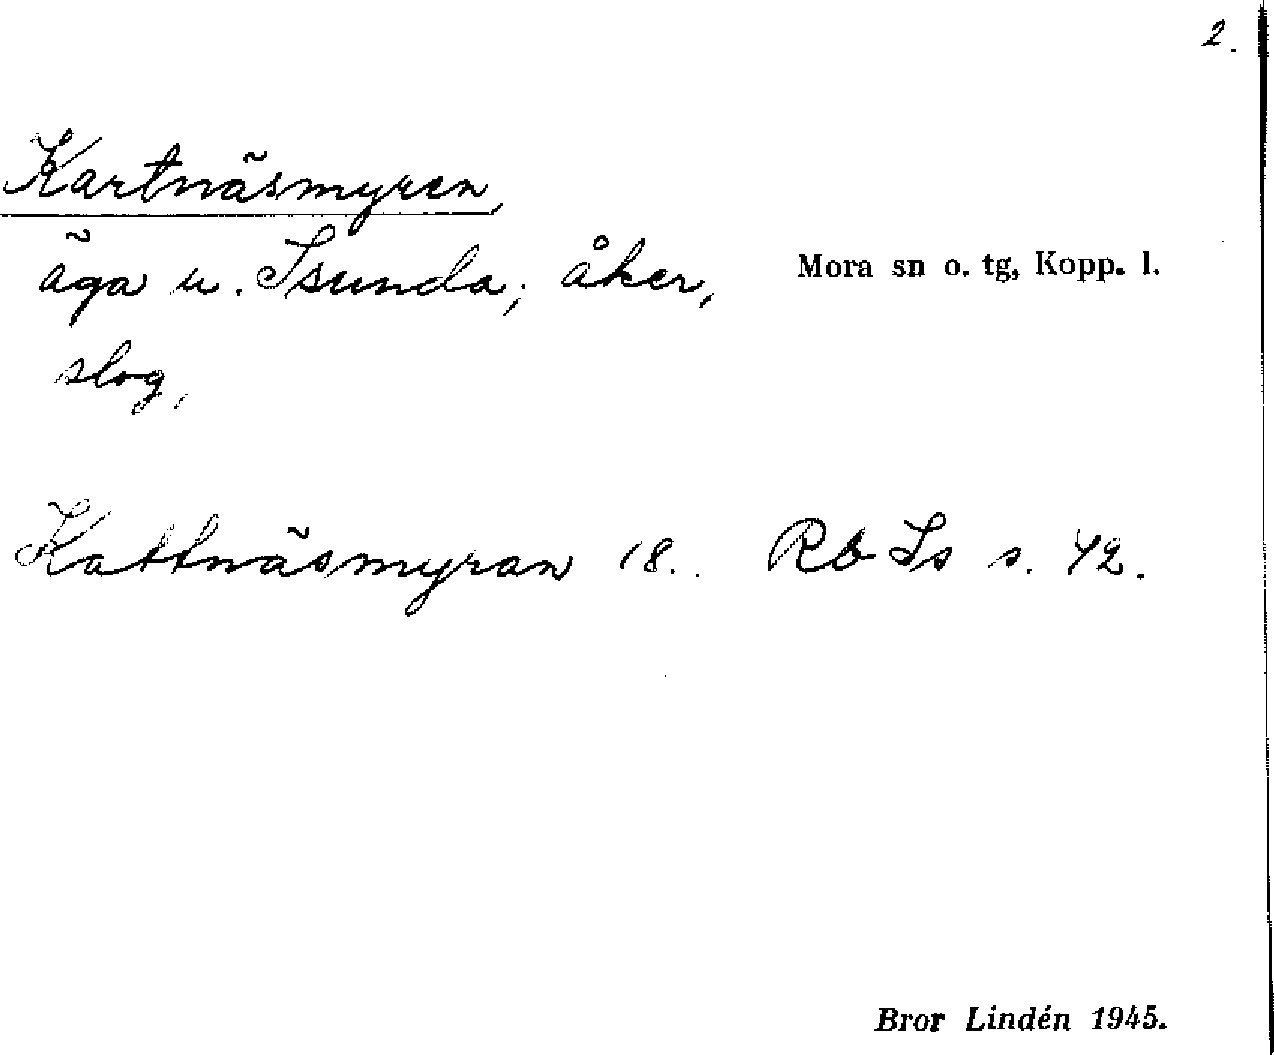 2.
Kartnäsmyren,
äga u. Isunda; åker,
Mora sn o. tg, Kopp. l.
slog,
Kattnäsmyran 18.. Rb Is s. 42.
Bror Lindén 1945.